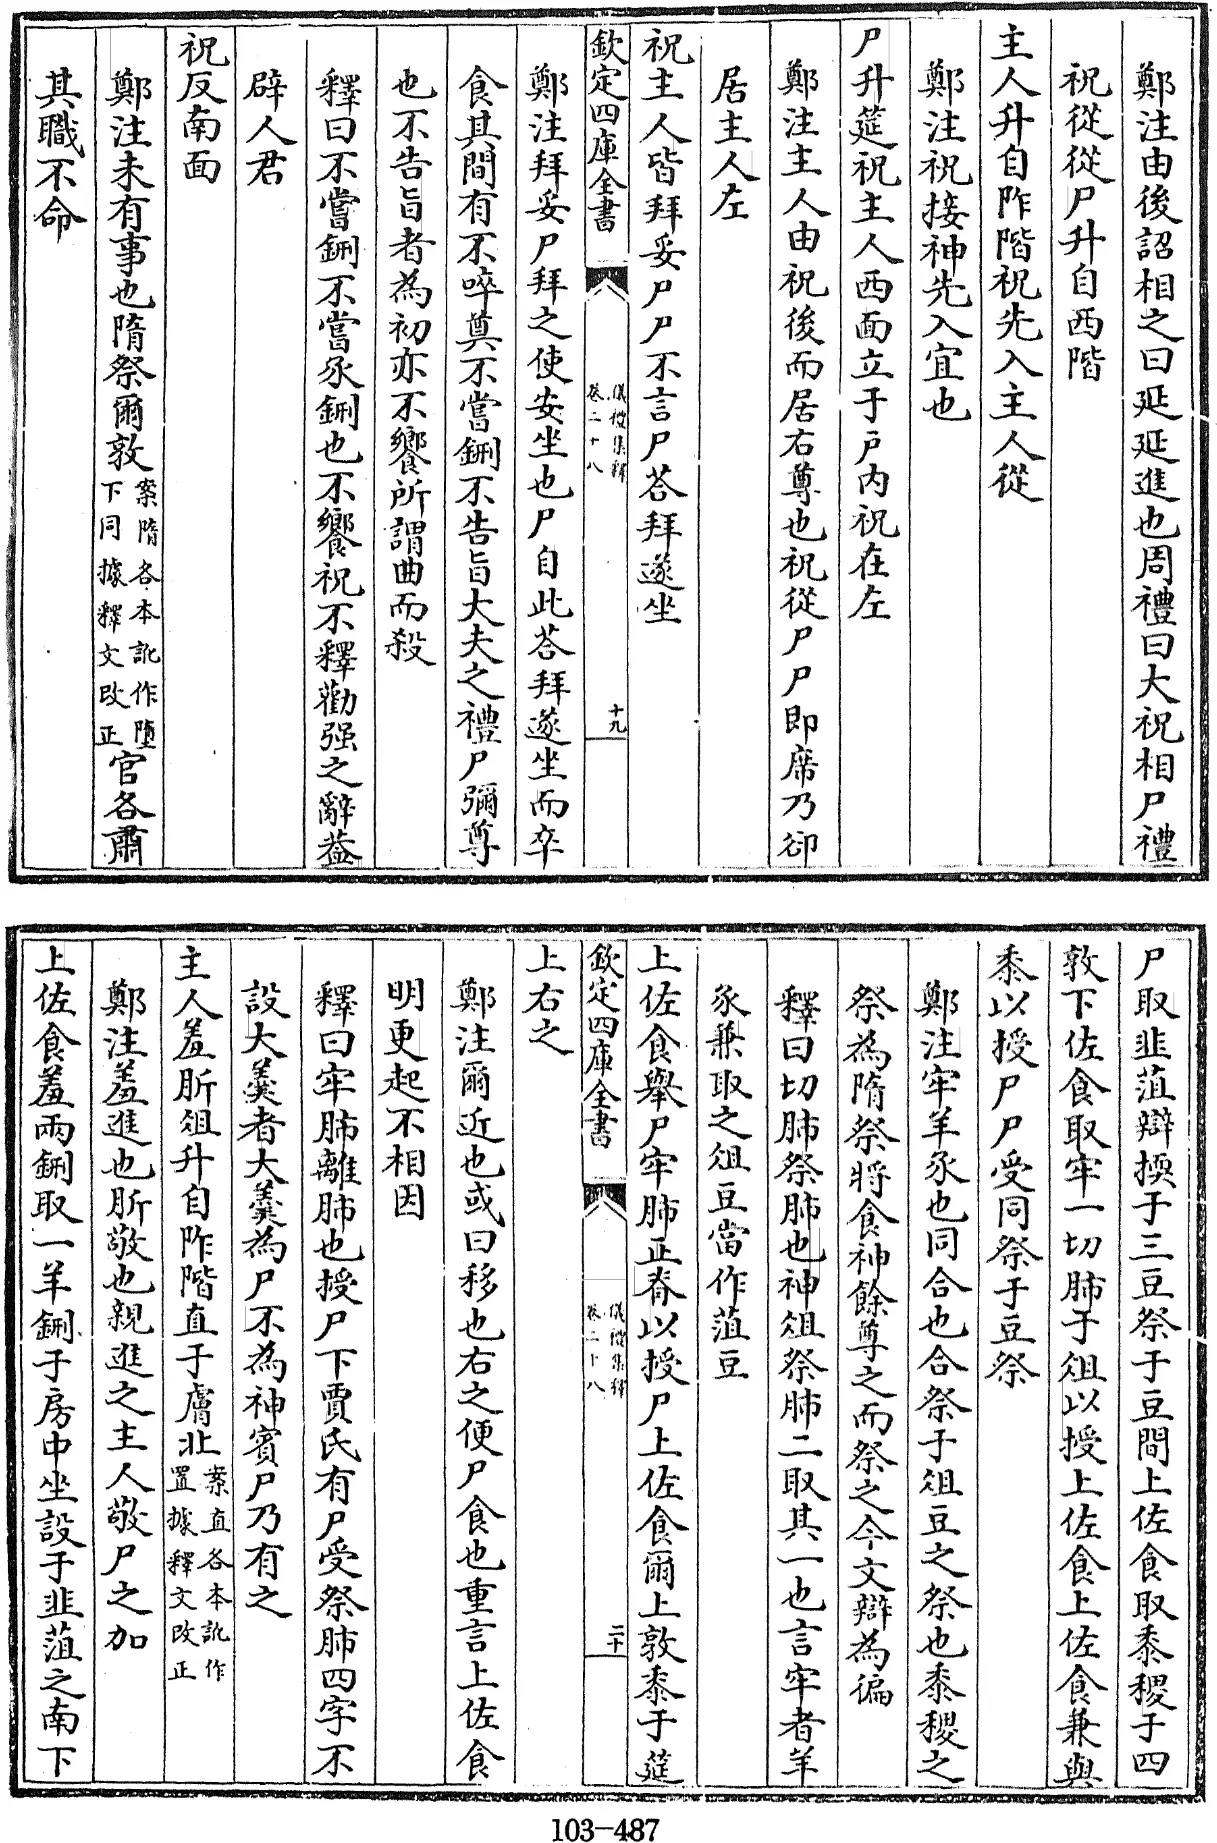 鄭注由後詔相之曰延延進也周禮曰大祝相尸禮
祝從從尸升自西階
主人升自阼階祝先入主人從
鄭注祝接神先入宜也
尸升筵祝主人西面立于戶内祝在左
鄭注主人由祝後而居右尊也祝從尸尸即席乃卻
居主人左
祝主人皆拜妥尸尸不言尸荅拜遂坐
欽定四庫全書
儀禮集釋
卷二十八
十九
鄭注拜妥尸拜之使安坐也尸自此荅拜遂坐而卒
食其間有不啐奠不嘗鉶不告旨大夫之禮尸彌尊
也不告旨者為初亦不饗所謂曲而殺
釋曰不嘗鉶不嘗豕鉶也不饗祝不釋勸强之辭葢
辟人君
祝反南面
鄭注未有事也隋祭爾敦案隋各本訛作墮下同據釋文改正官各肅
其職不命
尸取韭菹辯擩于三豆祭于豆間上佐食取黍稷于四
敦下佐食取牢一切肺于俎以授上佐食上佐食兼與
黍以授尸尸受同祭于豆祭
鄭注牢羊豕也同合也合祭于俎豆之祭也黍稷之
祭為隋祭將食神餘尊之而祭之今文辯為徧
釋曰切肺祭肺也神俎祭肺二取其一也言牢者羊
豕兼取之俎豆當作菹豆
上佐食舉尸牢肺正脊以授尸上佐食爾上敦黍于筵
欽定四庫全書
儀禮集釋
卷二十八
二十
上右之
鄭注爾近也或曰移也右之便尸食也重言上佐食
明更起不相因
釋曰牢肺離肺也授尸下賈氏有尸受祭肺四字不
設大羹者大羹為尸不為神賓尸乃有之
主人羞肵俎升自阼階直于膚北案直各本訛作置據釋文改正
鄭注羞進也肵敬也親進之主人敬尸之加
上佐食羞兩鉶取一羊鉶于房中坐設于韭菹之南下
103-487